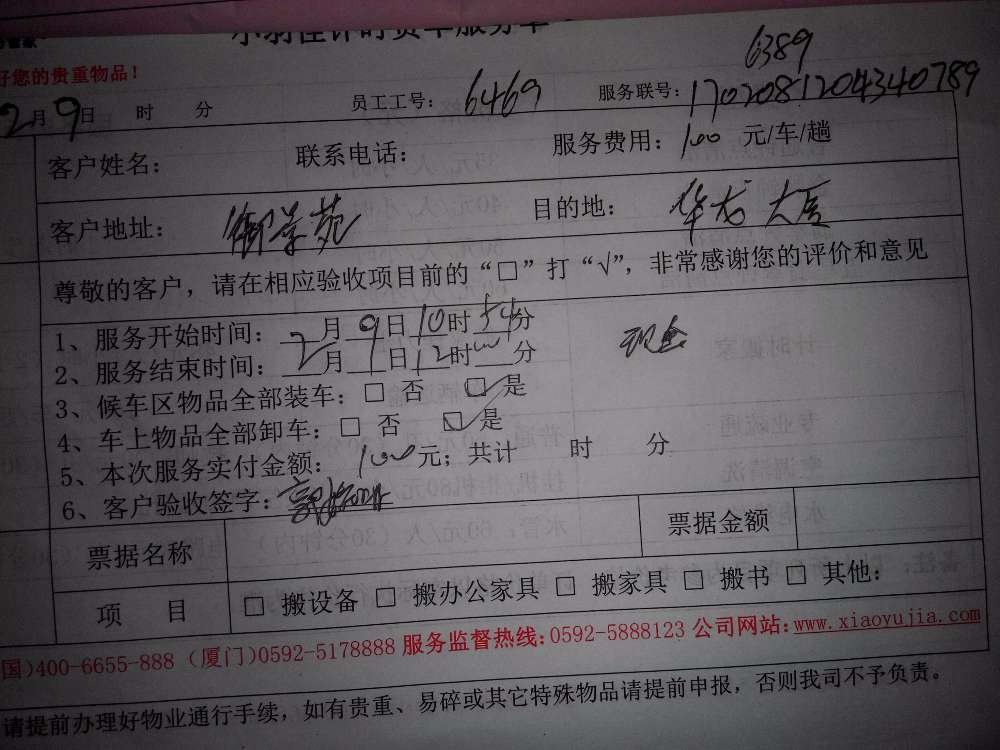 好您的贵重物品！
6389
2月9日 时 分 员工工号：6469 服务联号：1702081204340789
客户姓名： 联系电话： 服务费用：100 元/车/趟
客户地址：御景苑 目的地：华龙大厦
尊敬的客户，请在相应验收项目前的“□”打“√”，非常感谢您的评价和意见
1、服务开始时间：2月9日10时54分
2、服务结束时间：2月9日12时00分 现金
3、候车区物品全部装车：□ 否 ☑ 是
4、车上物品全部卸车：□ 否 ☑ 是
5、本次服务实付金额：100元；共计 时 分
6、客户验收签字：
票据名称 票据金额
项 目 □ 搬设备 □ 搬办公家具 □ 搬家具 □ 搬书 □ 其他：
国)400-6655-888 (厦门)0592-5178888 服务监督热线：0592-5888123 公司网站：www.xiaoyujia.com
请提前办理好物业通行手续，如有贵重、易碎或其它特殊物品请提前申报，否则我司不予负责。